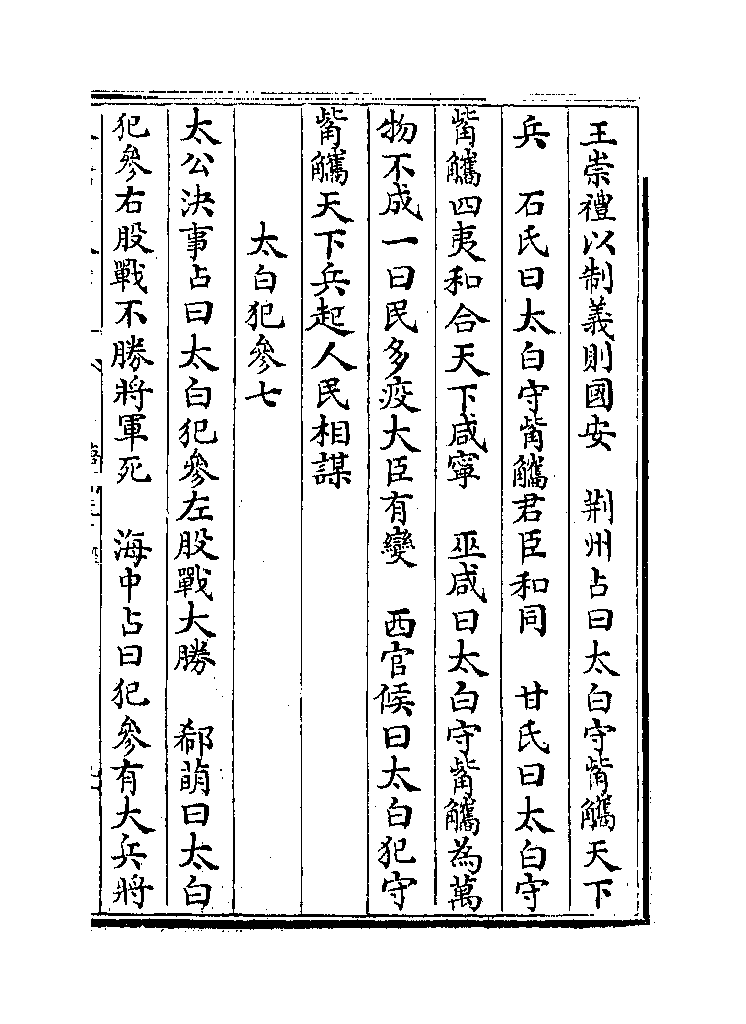 王崇禮以制義則國安　荆州占曰太白守觜觿天下
兵　石氏曰太白守觜觿君臣和同　甘氏曰太白守
觜觿四夷和合天下咸寧　巫咸曰太白守觜觿為萬
物不成一曰民多疫大臣有變　西官候曰太白犯守
觜觿天下兵起人民相謀
太白犯參七
太公決事占曰太白犯參左股戰大勝　郗萌曰太白
犯參右股戰不勝將軍死　海中占曰犯參有大兵將